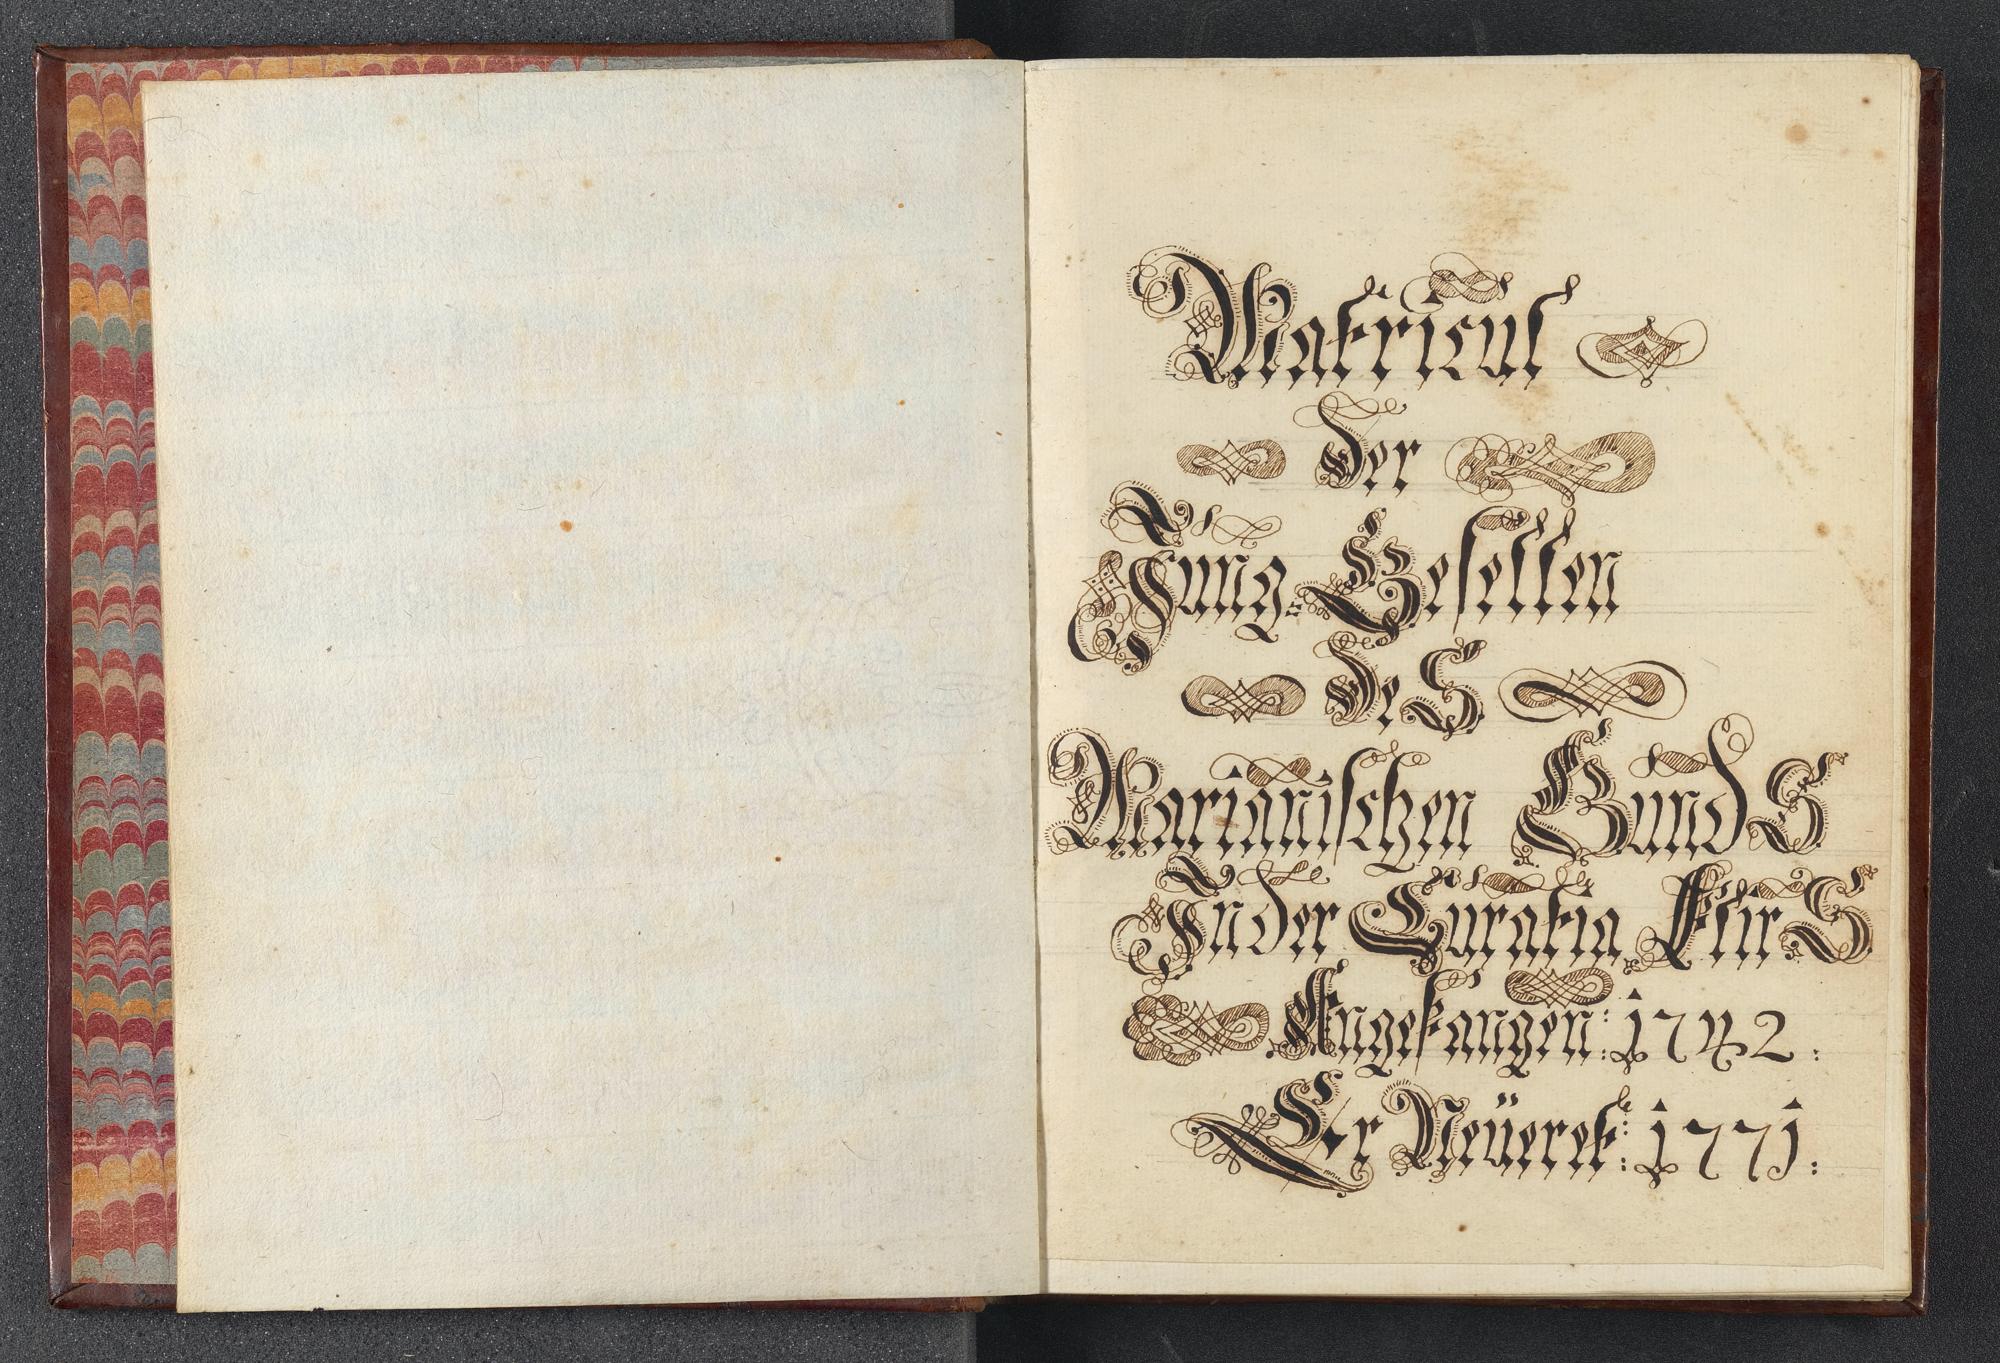 Matricul
der
Jung-Gesellen
deS
Marianischen BundS
In der Curatia FlirS
Angefangen: 1742:
Er Neüeret: 1771: